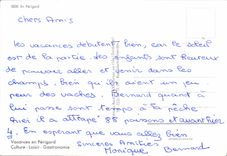 en Périgord
Chers Amis
les vacances débutent bien, car le soleil
est de la partie. Les enfants sont heureux
de pouvoir aller et venir dans les
champs, bien qu'ils aient un peu
peur des vaches. Bernard quant à
lui passe son temps à la pêche
hier il a attrapé 88 poissons et avant hier
4. En espérant que vous allez bien
Sincères Amitiés
Monique Bernard
Vacances en Périgord
Culture - Loisir - Gastronomie